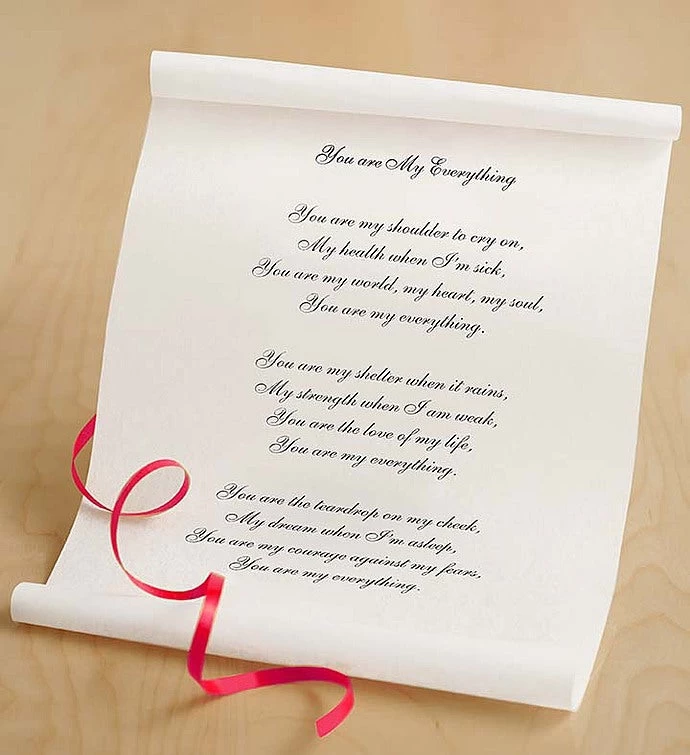 You are My Everything
You are my shoulder to cry on,
My health when I'm sick,
You are my world, my heart, my soul,
You are my everything.
You are my shelter when it rains,
My strength when I am weak,
You are the love of my life,
You are my everything.
You are the teardrop on my cheek,
My dream when I'm asleep,
You are my courage against my fears,
You are my everything.